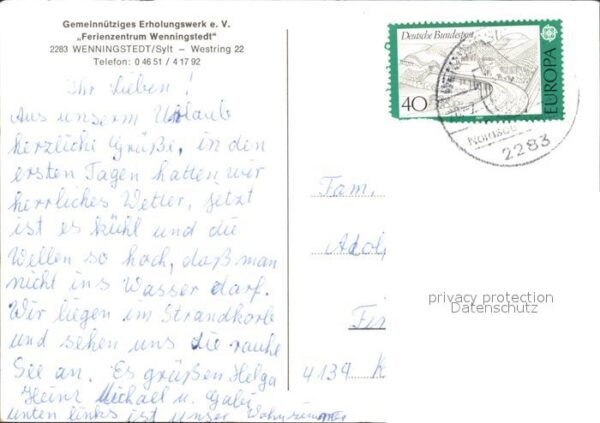 Gemeinnütziges Erholungswerk e. V.
„Ferienzentrum Wenningstedt"
2283 WENNINGSTEDT/Sylt - Westring 22
Telefon: 0 46 51 / 4 17 92
Ihr Lieben!
Aus unserm Urlaub
herzliche Grüße, in den
ersten Tagen hatten wir
herrliches Wetter, jetzt
ist es kühl und die
Wellen so hoch, daß man
nicht ins Wasser darf.
Wir liegen im Strandkorb
und sehen uns die rauhe
See an. Es grüßen Helga
Heinz Michael u. Gabi
unten links ist unser Wohnzimmer
Deutsche Bundespost
40
EUROPA
2283
Fam.
Adolf
Fin
4134 K
privacy protection
Datenschutz